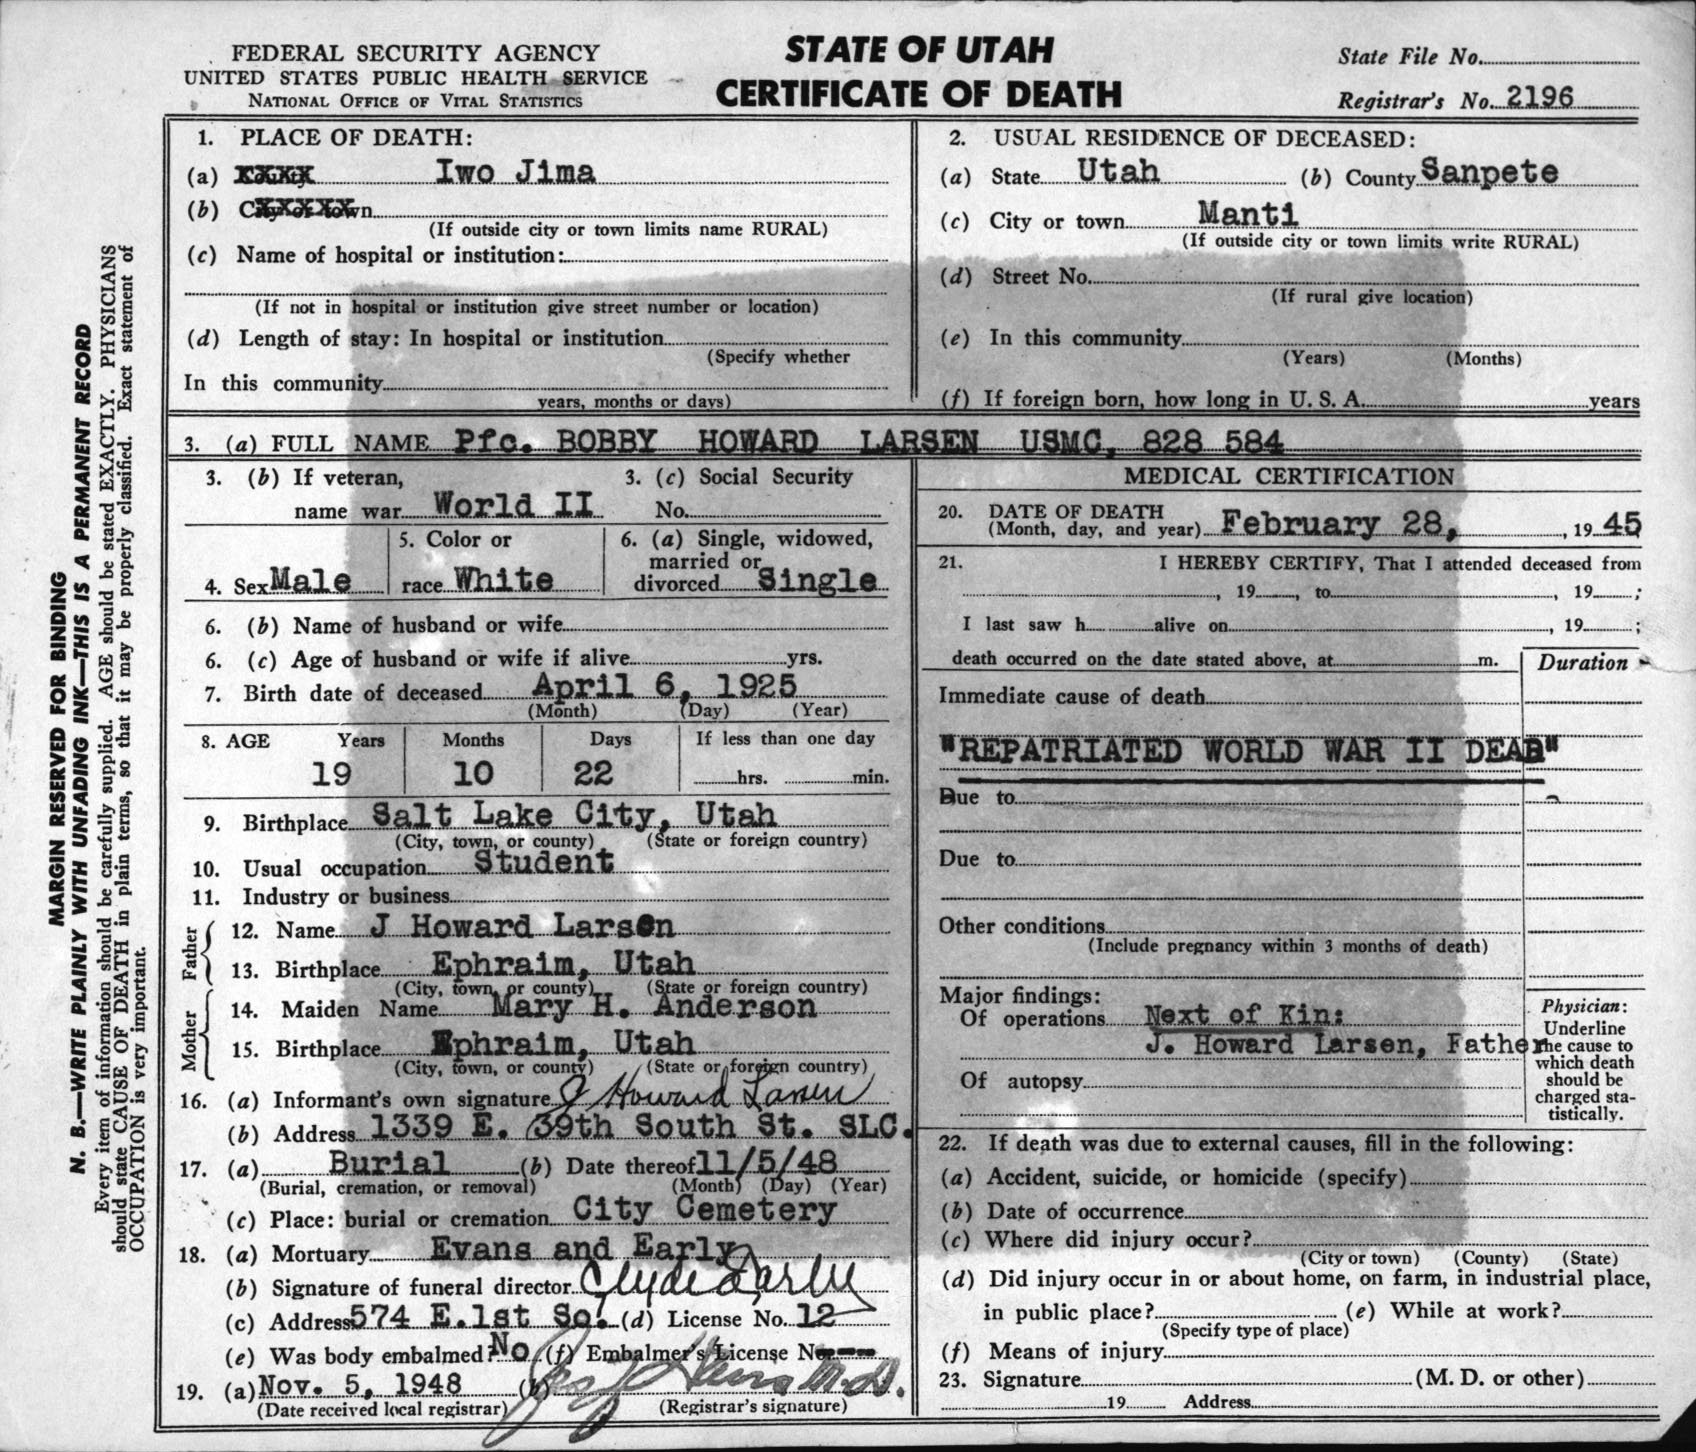 FEDERAL SECURITY AGENCY
UNITED STATES PUBLIC HEALTH SERVICE
NATIONAL OFFICE OF VITAL STATISTICS
STATE OF UTAH
CERTIFICATE OF DEATH
State File No.
Registrar's No. 2196
MARGIN RESERVED FOR BINDING
N. B.—WRITE PLAINLY WITH UNFADING INK—THIS IS A PERMANENT RECORD
Every item of information should be carefully supplied. AGE should be stated EXACTLY. PHYSICIANS
should state CAUSE OF DEATH in plain terms, so that it may be properly classified. Exact statement of
OCCUPATION is very important.
1. PLACE OF DEATH:
(a) County Iwo Jima
(b) City or town
(If outside city or town limits name RURAL)
(c) Name of hospital or institution:
(If not in hospital or institution give street number or location)
(d) Length of stay: In hospital or institution
(Specify whether
In this community
years, months or days)
2. USUAL RESIDENCE OF DECEASED:
(a) State Utah (b) County Sanpete
(c) City or town Manti
(If outside city or town limits write RURAL)
(d) Street No.
(If rural give location)
(e) In this community
(Years) (Months)
(f) If foreign born, how long in U. S. A. years
3. (a) FULL NAME Pfc. BOBBY HOWARD LARSEN USMC, 828 584
3. (b) If veteran,
name war World II
3. (c) Social Security
No.
4. Sex Male
5. Color or
race White
6. (a) Single, widowed,
married or
divorced Single
6. (b) Name of husband or wife
6. (c) Age of husband or wife if alive yrs.
7. Birth date of deceased April 6, 1925
(Month) (Day) (Year)
8. AGE Years Months Days If less than one day
19 10 22 hrs. min.
9. Birthplace Salt Lake City, Utah
(City, town, or county) (State or foreign country)
10. Usual occupation Student
11. Industry or business
Father
12. Name J Howard Larsen
13. Birthplace Ephraim, Utah
(City, town, or county) (State or foreign country)
Mother
14. Maiden Name Mary H. Anderson
15. Birthplace Ephraim, Utah
(City, town, or county) (State or foreign country)
16. (a) Informant's own signature J Howard Larsen
(b) Address 1339 E. 39th South St. SLC.
17. (a) Burial (b) Date thereof 11/5/48
(Burial, cremation, or removal) (Month) (Day) (Year)
(c) Place: burial or cremation City Cemetery
18. (a) Mortuary Evans and Early
(b) Signature of funeral director Clyde Early
(c) Address 574 E.1st So. (d) License No. 12
(e) Was body embalmed? No (f) Embalmer's License No
19. (a) Nov. 5, 1948 (b) M.D.
(Date received local registrar) (Registrar's signature)
MEDICAL CERTIFICATION
20. DATE OF DEATH
(Month, day, and year) February 28, , 19 45
21. I HEREBY CERTIFY, That I attended deceased from
, 19 , to , 19 ;
I last saw h alive on , 19 ;
death occurred on the date stated above, at m.
Duration
Immediate cause of death
"REPATRIATED WORLD WAR II DEAD"
Due to
Due to
Other conditions
(Include pregnancy within 3 months of death)
Major findings:
Of operations Next of Kin:
J. Howard Larsen, Father
Of autopsy
Physician:
Underline
the cause to
which death
should be
charged sta-
tistically.
22. If death was due to external causes, fill in the following:
(a) Accident, suicide, or homicide (specify)
(b) Date of occurrence
(c) Where did injury occur?
(City or town) (County) (State)
(d) Did injury occur in or about home, on farm, in industrial place,
in public place? (e) While at work?
(Specify type of place)
(f) Means of injury
23. Signature (M. D. or other)
19 Address